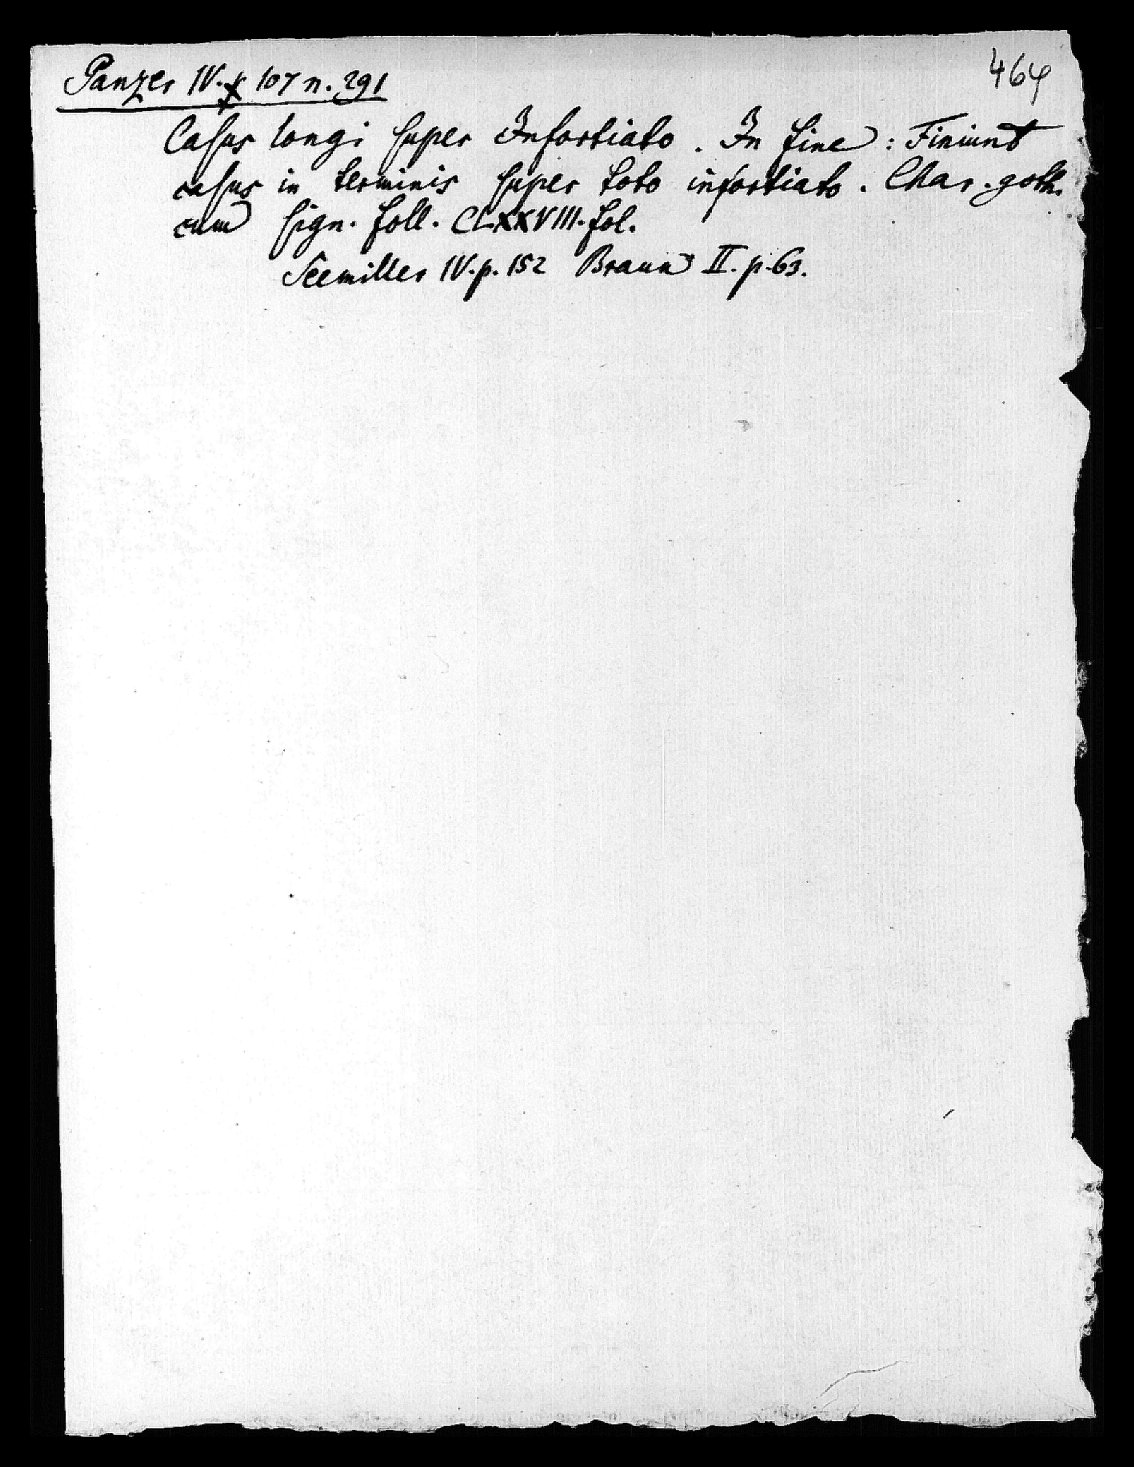 464
Panzer IV. p 107 n. 291
Casus longi super Infortiato. In fine: Finiunt
casus in terminis super toto infortiato. Char. goth.
cum sign. foll. CLXXVIII. fol.
Seemiller IV. p. 152 Braun II. p. 63.